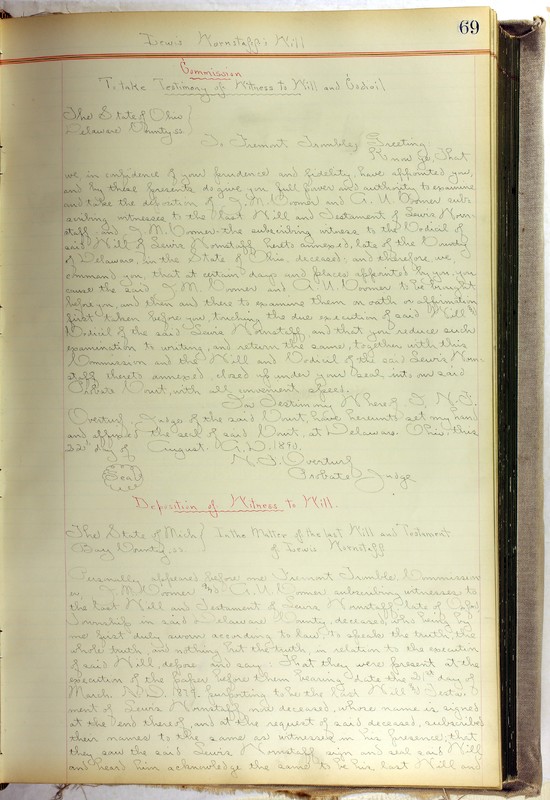 69
Lewis Wornstaff's Will
Commission
To take Testimony of Witness to Will and Codicil
The State of Ohio
Delaware County ss
To Fremont Tramble, Greeting.
Know ye, That
we, in confidence of your prudence and fidelity, have appointed you,
and by these presents do give you full power and authority to examine
and take the deposition of J. M. Comer and A. U. Comer sub-
scribing witnesses to the last Will and Testament of Lewis Worn-
staff and J. M. Comer the subscribing witness to the Codicil of
said Will of Lewis Wornstaff hereto annexed, late of the County
of Delaware, in the State of Ohio, deceased; and therefore, we,
command you, that at certain days and places appointed by you, you
cause the said J. M. Comer and A. U. Comer to be brought
before you, and then and there to examine them on oath or affirmation
first taken before you, touching the due execution of said Will &
Codicil of the said Lewis Wornstaff and that you reduce such
examination to writing, and return the same, together with this
Commission and the Will and Codicil of the said Lewis Worn-
staff thereto annexed, closed up under your seal, into our said
Probate Court, with all convenient speed.
In Testimony Whereof I, N. F.
Overturf, Judge of the said Court, have hereunto set my hand
and affixed the seal of said Court, at Delaware, Ohio, this
day of August A. D. 1890.
Seal
N. F. Overturf
Probate Judge
Deposition of Witness to Will.
The State of Mich
Bay County, ss.
In the Matter of the last Will and Testament
of Lewis Wornstaff
Personally appeared before me Fremont Tramble, Commission
er, J. M. Comer and A. U. Comer subscribing witnesses to
the last Will and Testament of Lewis Wornstaff late of
Township in said Delaware County, deceased, who being by
me first duly sworn according to law, to speak the truth, the
whole truth, and nothing but the truth, in relation to the execution
of said Will, depose and say: That they were present at the
execution of the Paper before them bearing date the 21st day of
March A.D. 1879, purporting to be the Last Will & Testa-
ment of Lewis Wornstaff now deceased, whose name is signed
at the end thereof, and at the request of said deceased, subscribed
their names to the same as witnesses in his presence; that
they saw the said Lewis Wornstaff sign and seal said Will
and heard him acknowledge the same to be his last Will and